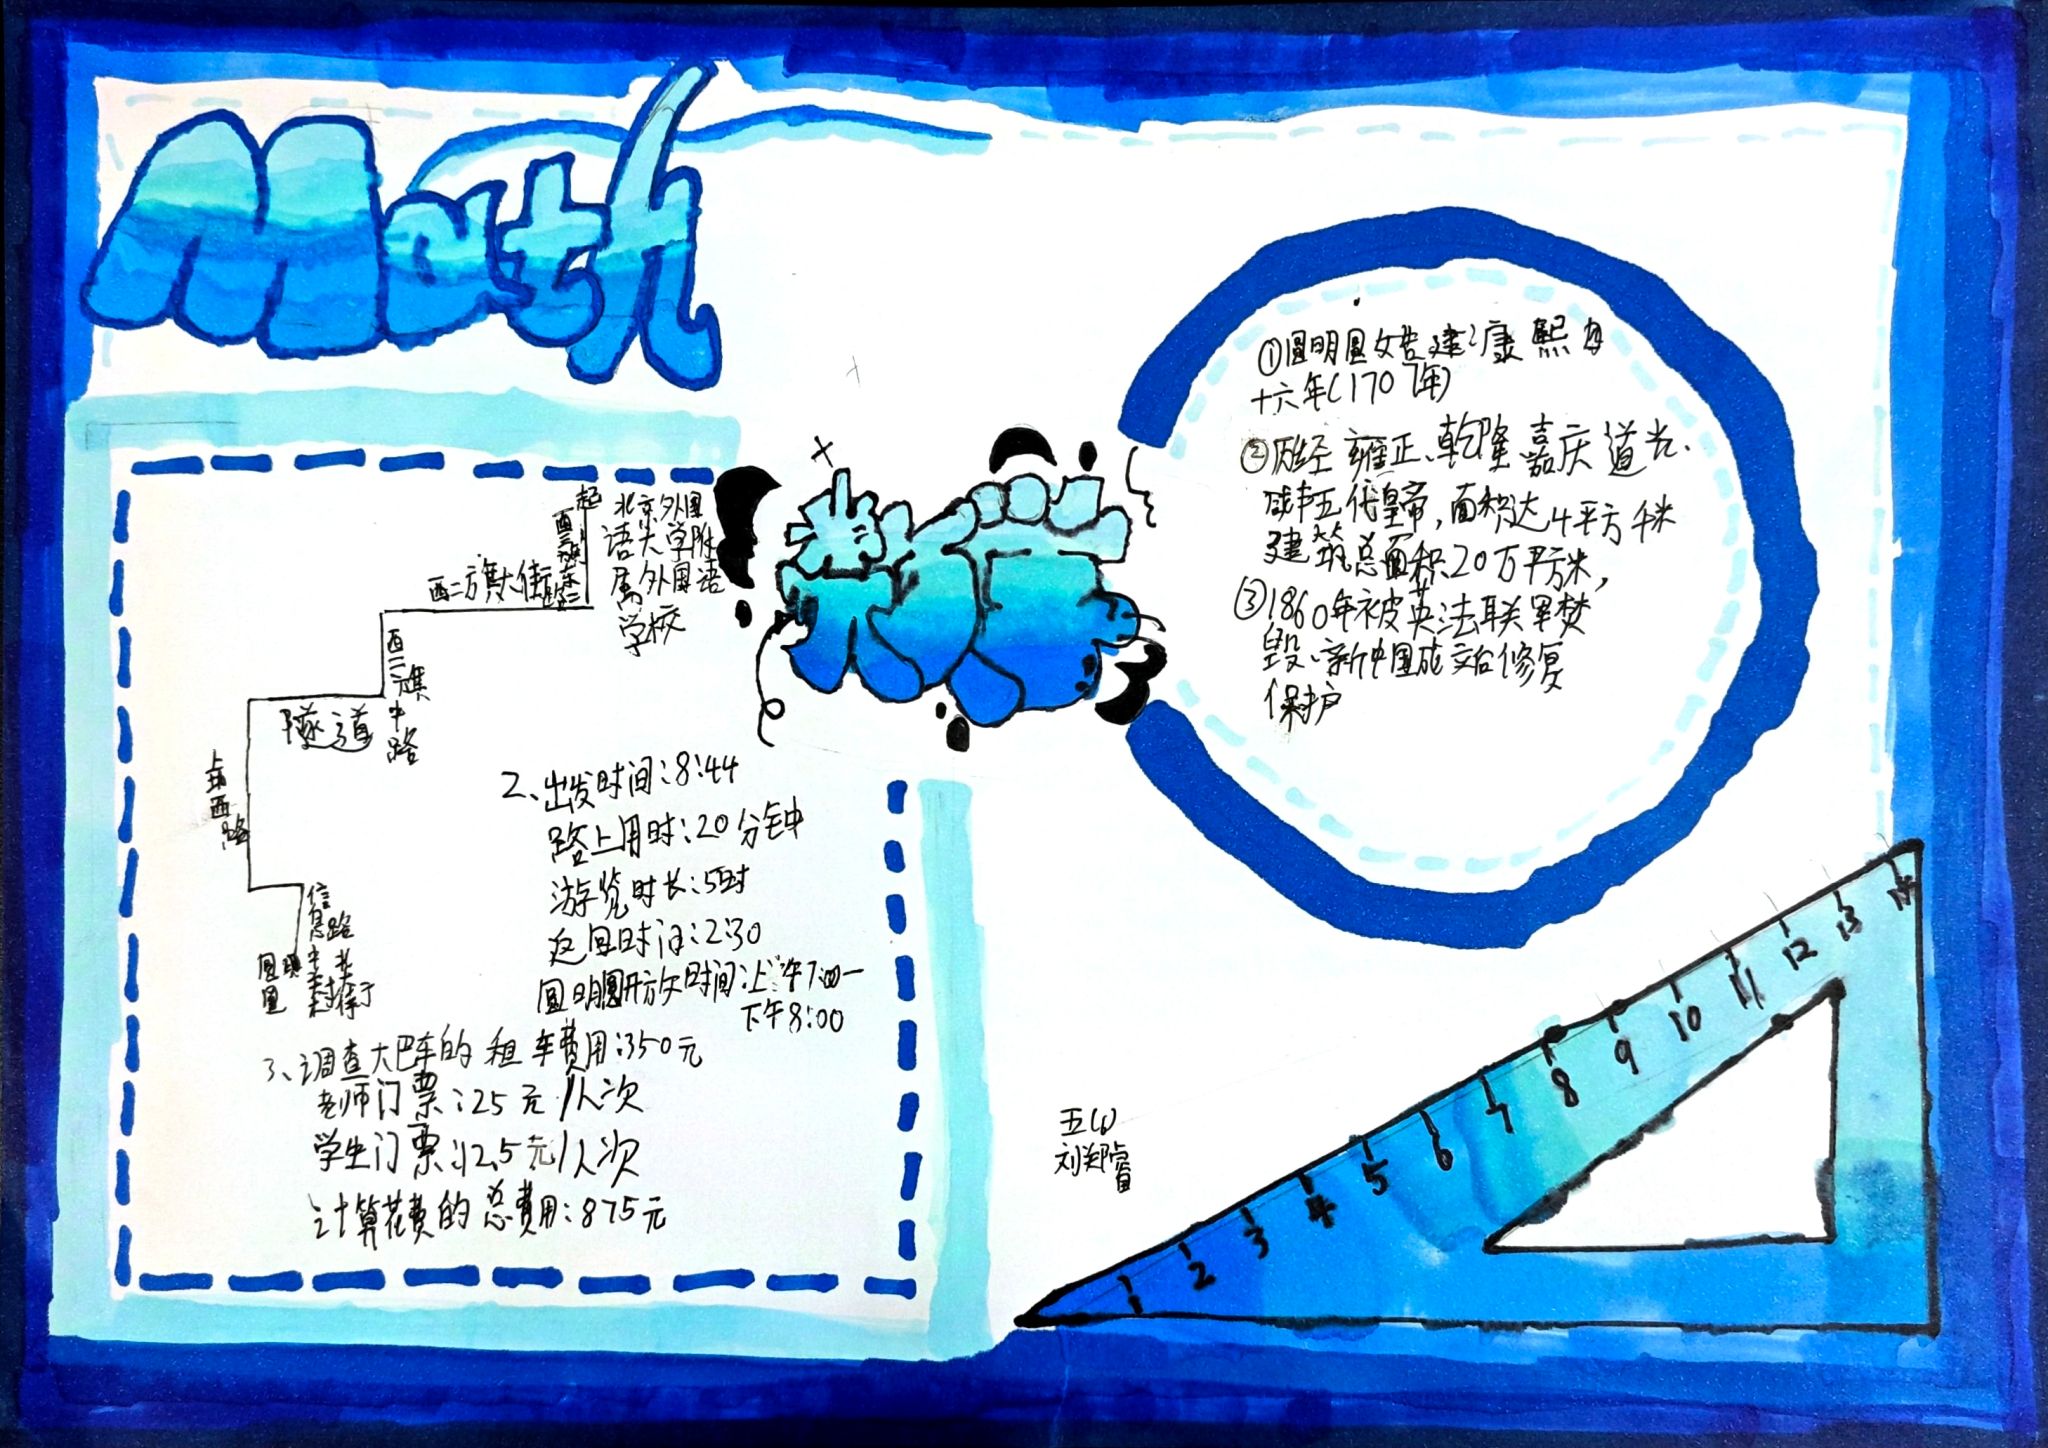 Math
数学
起
北京外国
语大学附
属外国语
学校
西三旗东路
西二旗大街
西二旗中路
隧道
上地西路
信息路
中关村北大街
圆明园
2、出发时间:8:44
路上用时:20分钟
游览时长:5时
返回时间:2:30
圆明园开放时间:上午7:00—
下午8:00
3、调查大巴车的租车费用:350元
老师门票:25元/人次
学生门票:12.5元/人次
计算花费的总费用:875元
①圆明园始建:康熙
十六年(1707年)
②历经雍正、乾隆、嘉庆道光、
咸丰五代皇帝,面积达4平方千米
建筑总面积20万平方米,
③1860年被英法联军焚
毁、新中国成立后修复
保护
五(6)
刘郑睿
1 2 3 4 5 6 7 8 9 10 11 12 13 14